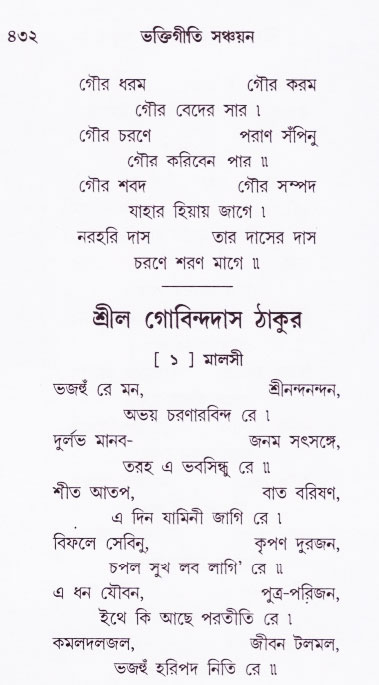 ৪৩২ ভক্তিগীতি সঞ্চয়ন
গৌর ধরম গৌর করম
গৌর বেদের সার ৷
গৌর চরণে পরাণ সঁপিনু
গৌর করিবেন পার ॥
গৌর শবদ গৌর সম্পদ
যাহার হিয়ায় জাগে ৷
নরহরি দাস তার দাসের দাস
চরণে শরণ মাগে ॥
শ্রীল গোবিন্দদাস ঠাকুর
[ ১ ] মালসী
ভজহুঁ রে মন, শ্রীনন্দনন্দন,
অভয় চরণারবিন্দ রে ৷
দুর্লভ মানব- জনম সৎসঙ্গে,
তরহ এ ভবসিন্ধু রে ॥
শীত আতপ, বাত বরিষণ,
এ দিন যামিনী জাগি রে ৷
বিফলে সেবিনু, কৃপণ দুরজন,
চপল সুখ লব লাগি’ রে ॥
এ ধন যৌবন, পুত্র-পরিজন,
ইথে কি আছে পরতীতি রে ৷
কমলদলজল, জীবন টলমল,
ভজহুঁ হরিপদ নিতি রে ॥